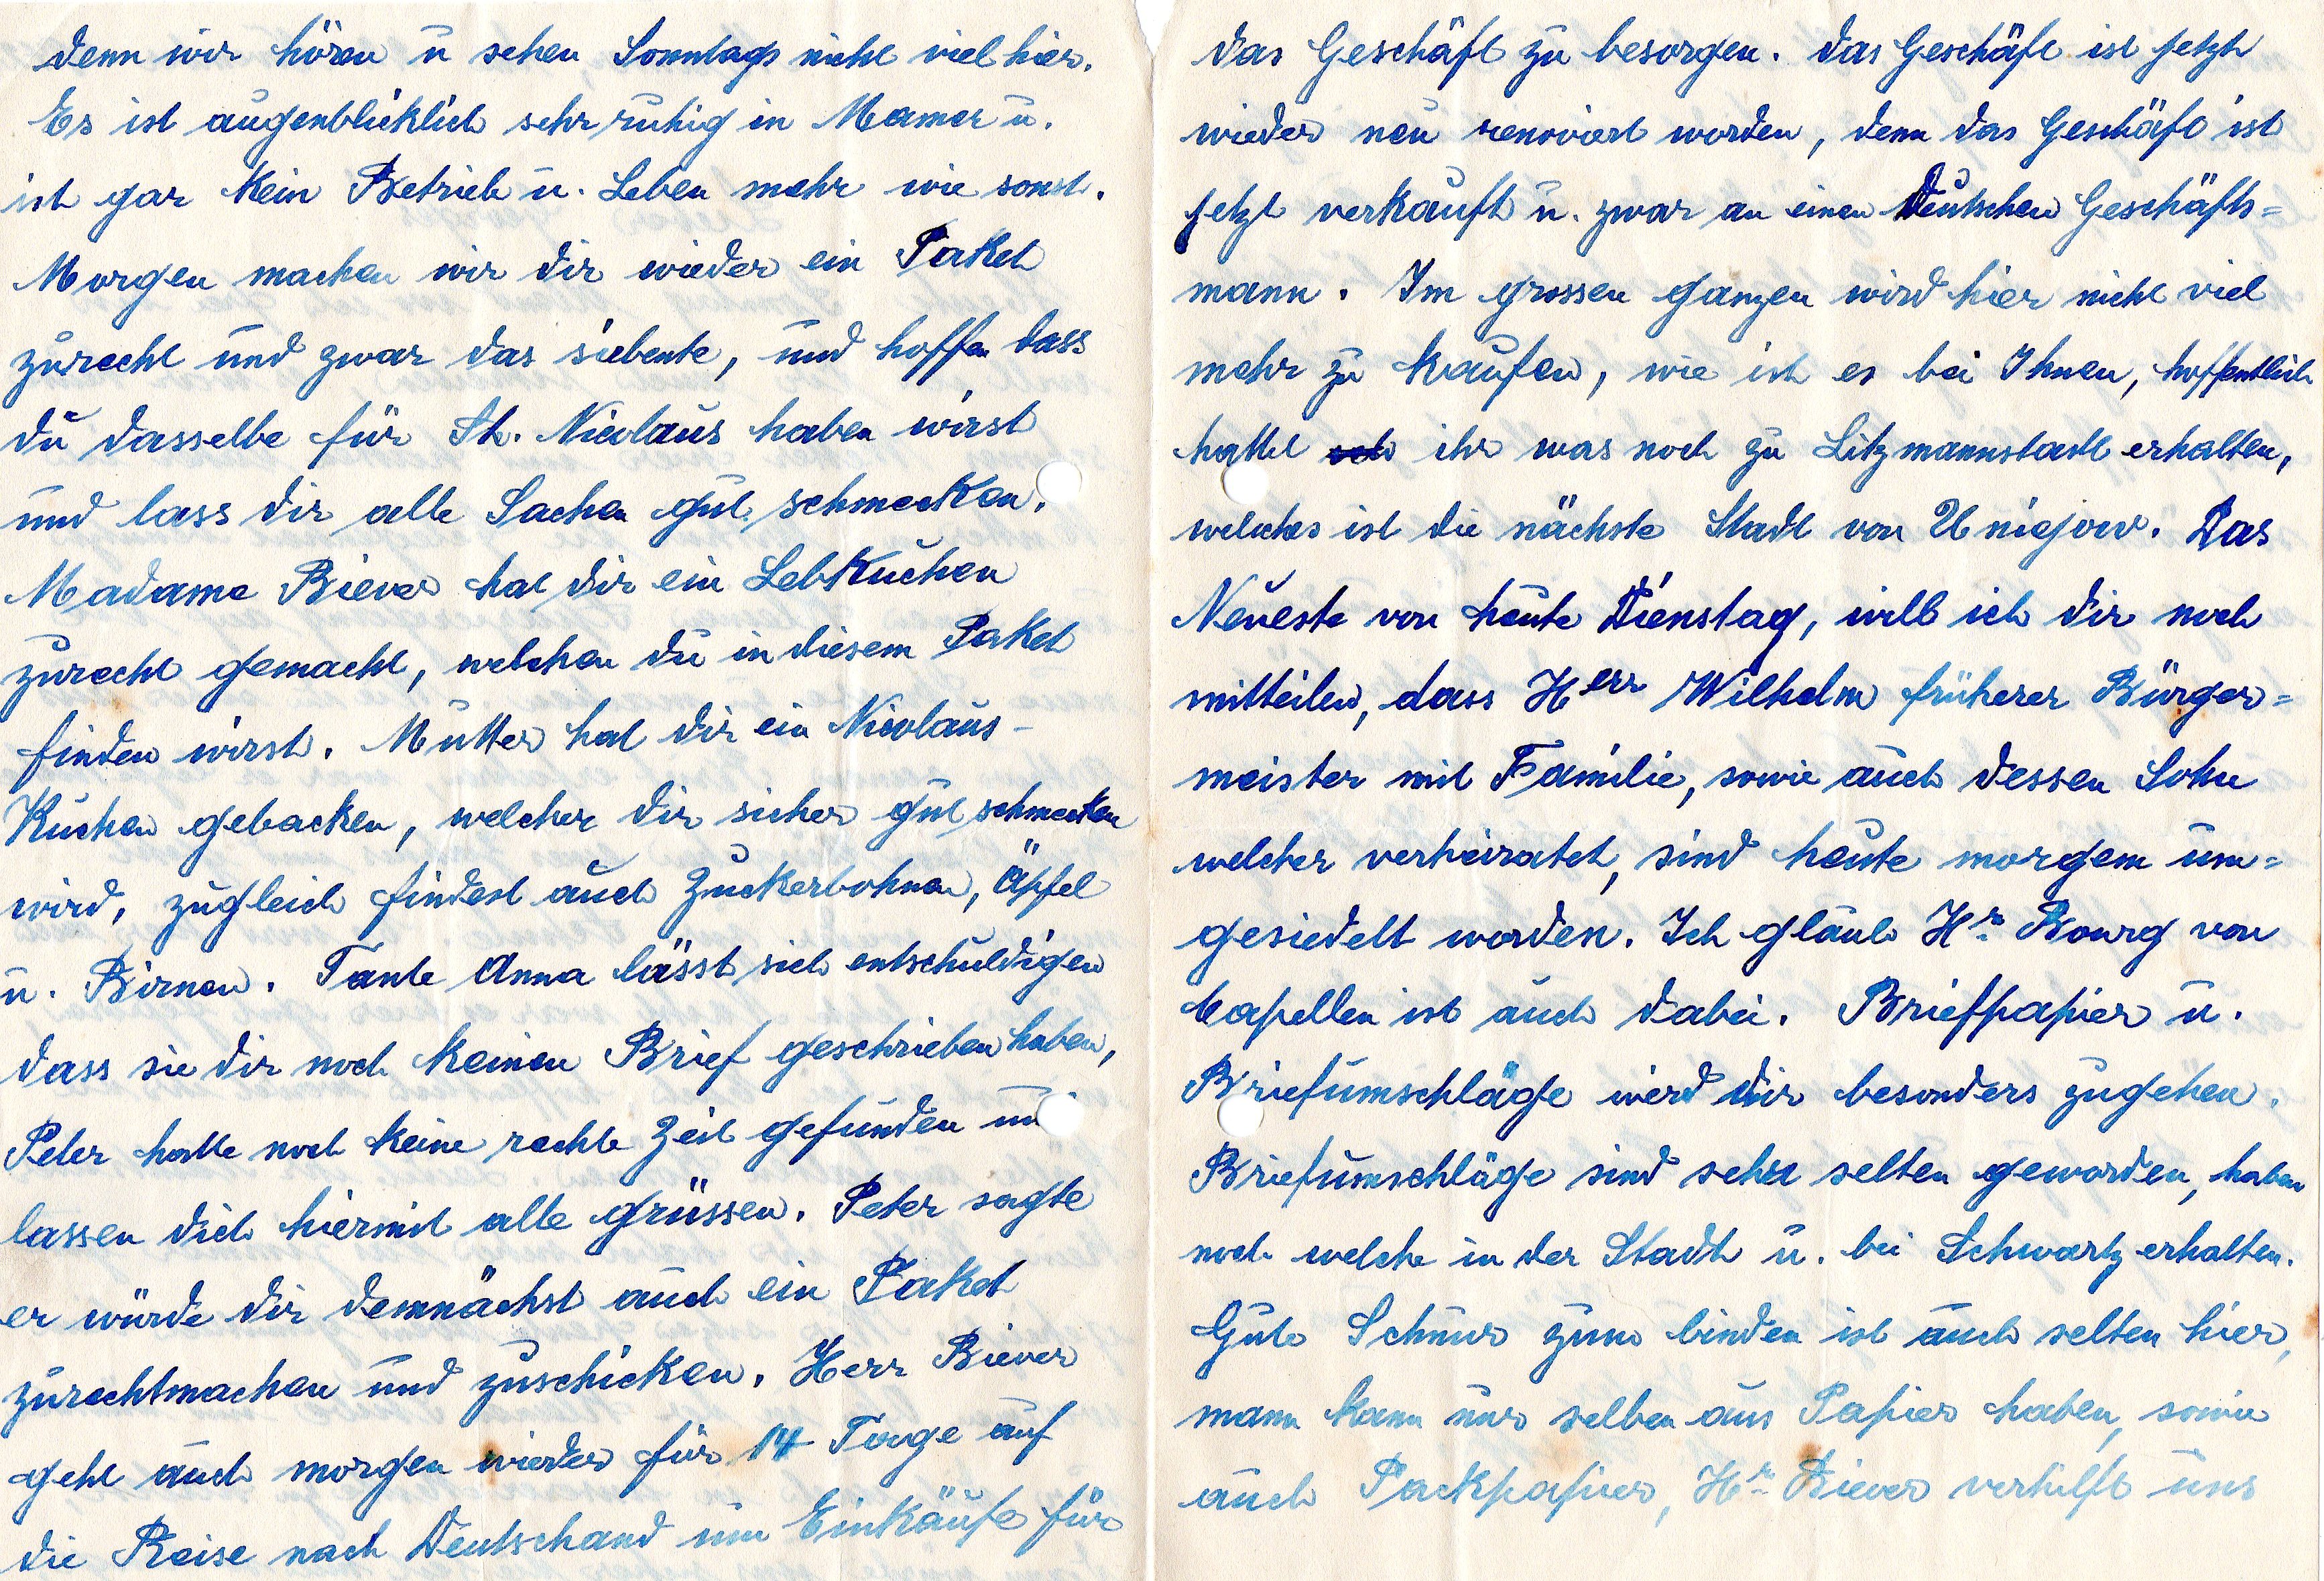 denn wir hören u sehen Sonntags nicht viel hier.
Es ist augenblicklich sehr ruhig in Mamer u.
ist gar kein Betrieb u. Leben mehr wie sonst.
Morgen machen wir dir wieder ein Paket
zurecht und zwar das siebente, und hoffen dass
du dasselbe für St. Nicolaus haben wirst
und lass dir alle Sachen gut schmecken.
Madame Biever hat dir ein Lebkuchen
zurecht gemacht, welchen du in diesem Paket
finden wirst. Mutter hat dir ein Nicolaus-
Kuchen gebacken, welcher dir sicher gut schmecken
wird, zugleich findest auch Zuckerbohnen, Äpfel
u. Birnen. Tante Anna lässt sich entschuldigen
dass sie dir noch keinen Brief geschrieben haben,
Peter hatte noch keine rechte Zeit gefunden un
lassen dich hiermit alle grüssen. Peter sagte
er würde dir demnächst auch ein Paket
zurechtmachen und zuschicken. Herr Biever
geht auch morgen wieder für 14 Tage auf
die Reise nach Deutschand um Einkäufe für
das Geschäft zu besorgen. Das Geschäft ist jetzt
wieder neu renoviert worden, denn das Geschäft ist
jetzt verkauft u. zwar an einen Deutschen Geschäfts=
mann. Im grossen ganzen wird hier nicht viel
mehr zu kaufen, wie ist es bei Ihnen, hoffentlich
hattet ihr was noch zu Litzmannstadt erhalten,
welches ist die nächste Stadt von Uniejow. Das
Neueste von heute Dienstag, will ich dir noch
mitteilen, dass Herr Wilhelm früherer Bürger=
meister mit Familie, sowie auch dessen Sohn
welcher verheiratet, sind heute morgem um=
gesiedelt worden. Ich glaub Hr. Bourg von
Capellen ist auch dabei. Briefpapier u.
Briefumschläge wird dir besonders zugehen.
Briefumschläge sind sehr selten geworden, haben
noch welche in der Stadt u. bei Schwartz erhalten.
Gute Schnur zum binden ist auch selten hier,
mann kann nur selben aus Papier haben, sowie
auch Packpapier, Hr. Biever verhilft uns